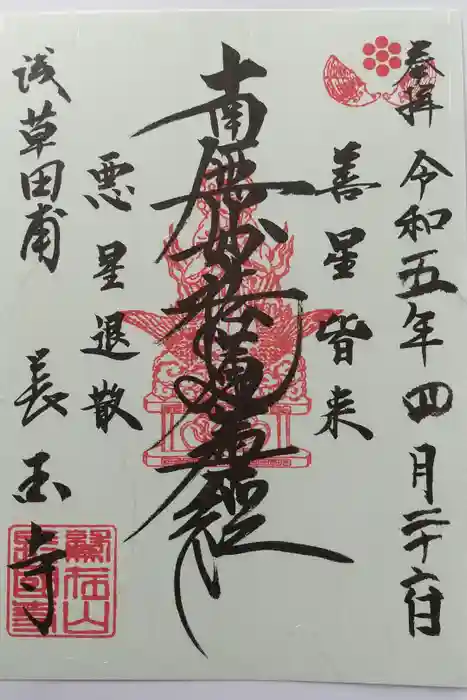 奉拝
令和五年四月二十六日
善星皆来
南無妙法蓮華経
悪星退散
浅草田甫
長国寺
鷲在山
長国寺